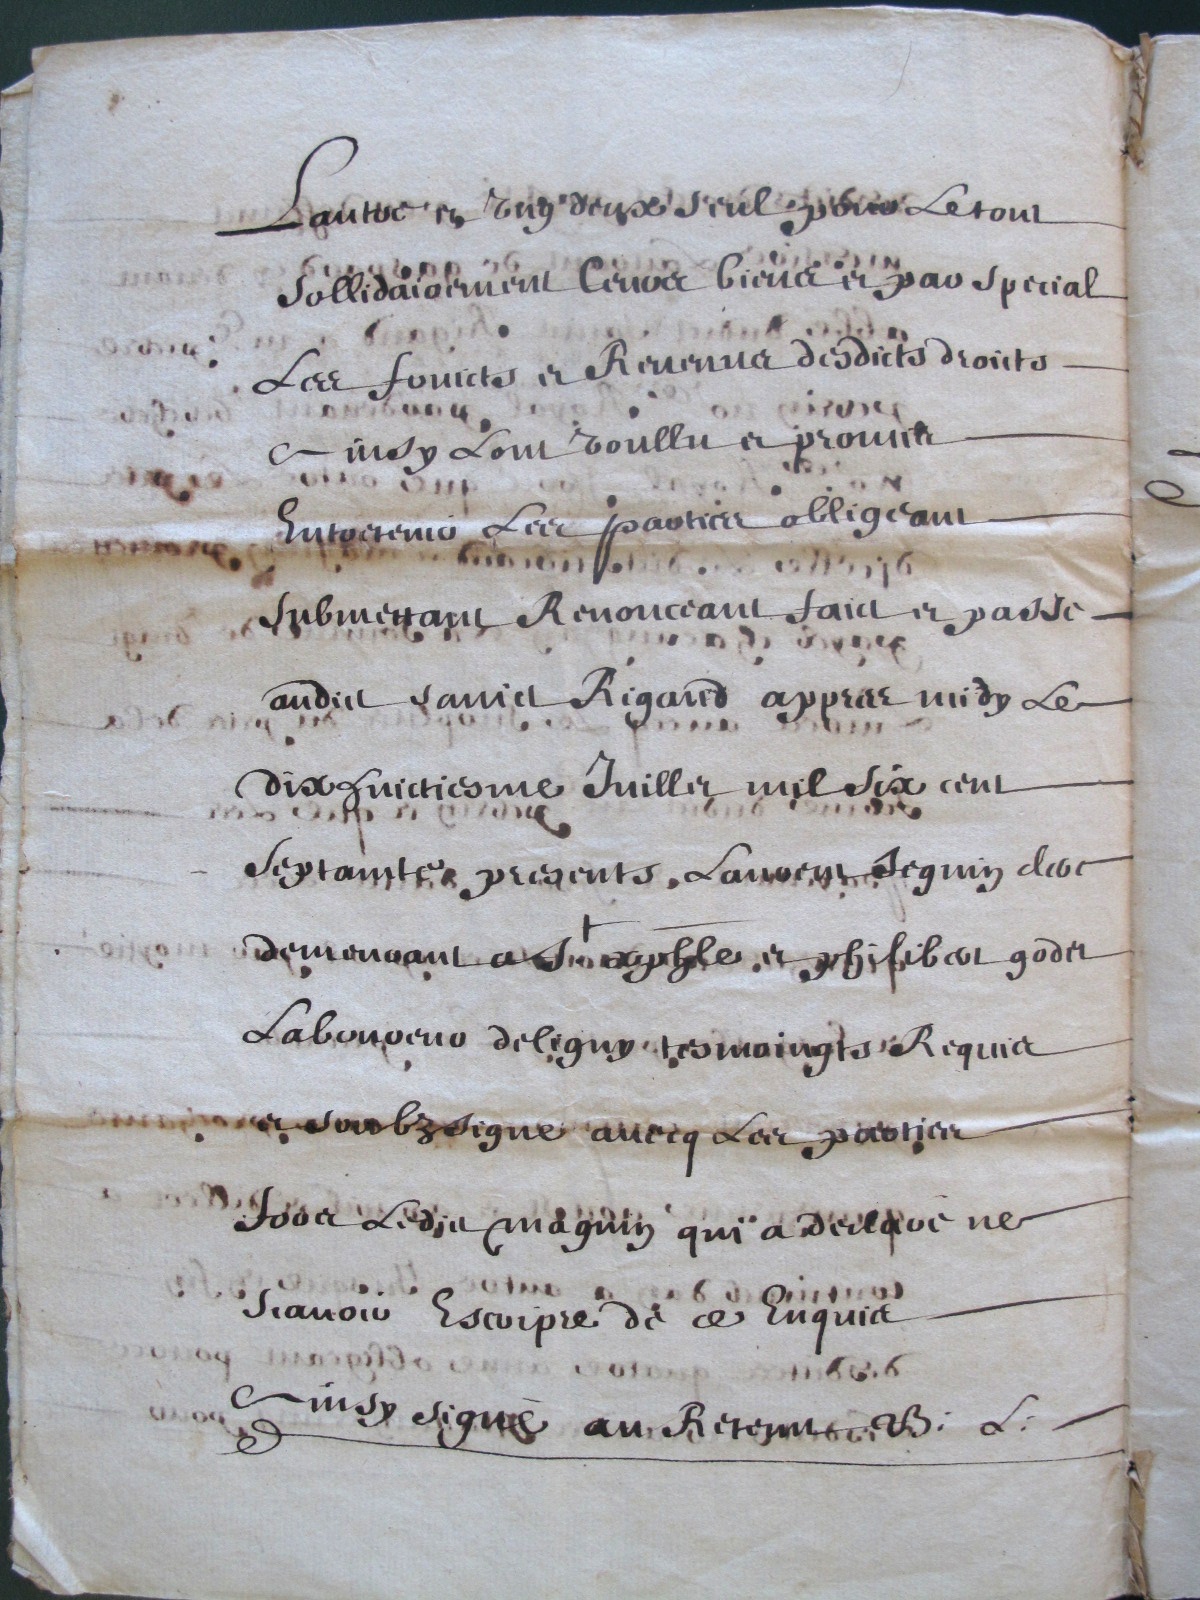 Lautre et ung deux seul pour Letout
Sollidairement Leurs biens et par special
Les fruicts et Revenus desdicts droicts
Ainsy Lont voullu et promis
Entretenir Les parties obligeant
Submettant Renonceant faict et passé
audict sainct Rigaud appres midy Le
dixhuictiesme Juillet mil six cent
Septante presents Laurent Seguin clerc
demeurant a St xyphle et philibert godet
Laboureur deligny tesmoingts Requis
et soubzsigne avecq Les parties
fors Ledict maguin qui a declaré ne
scavoir Escripre de ce Enquis
Ainsy signé au Retenu B. L.